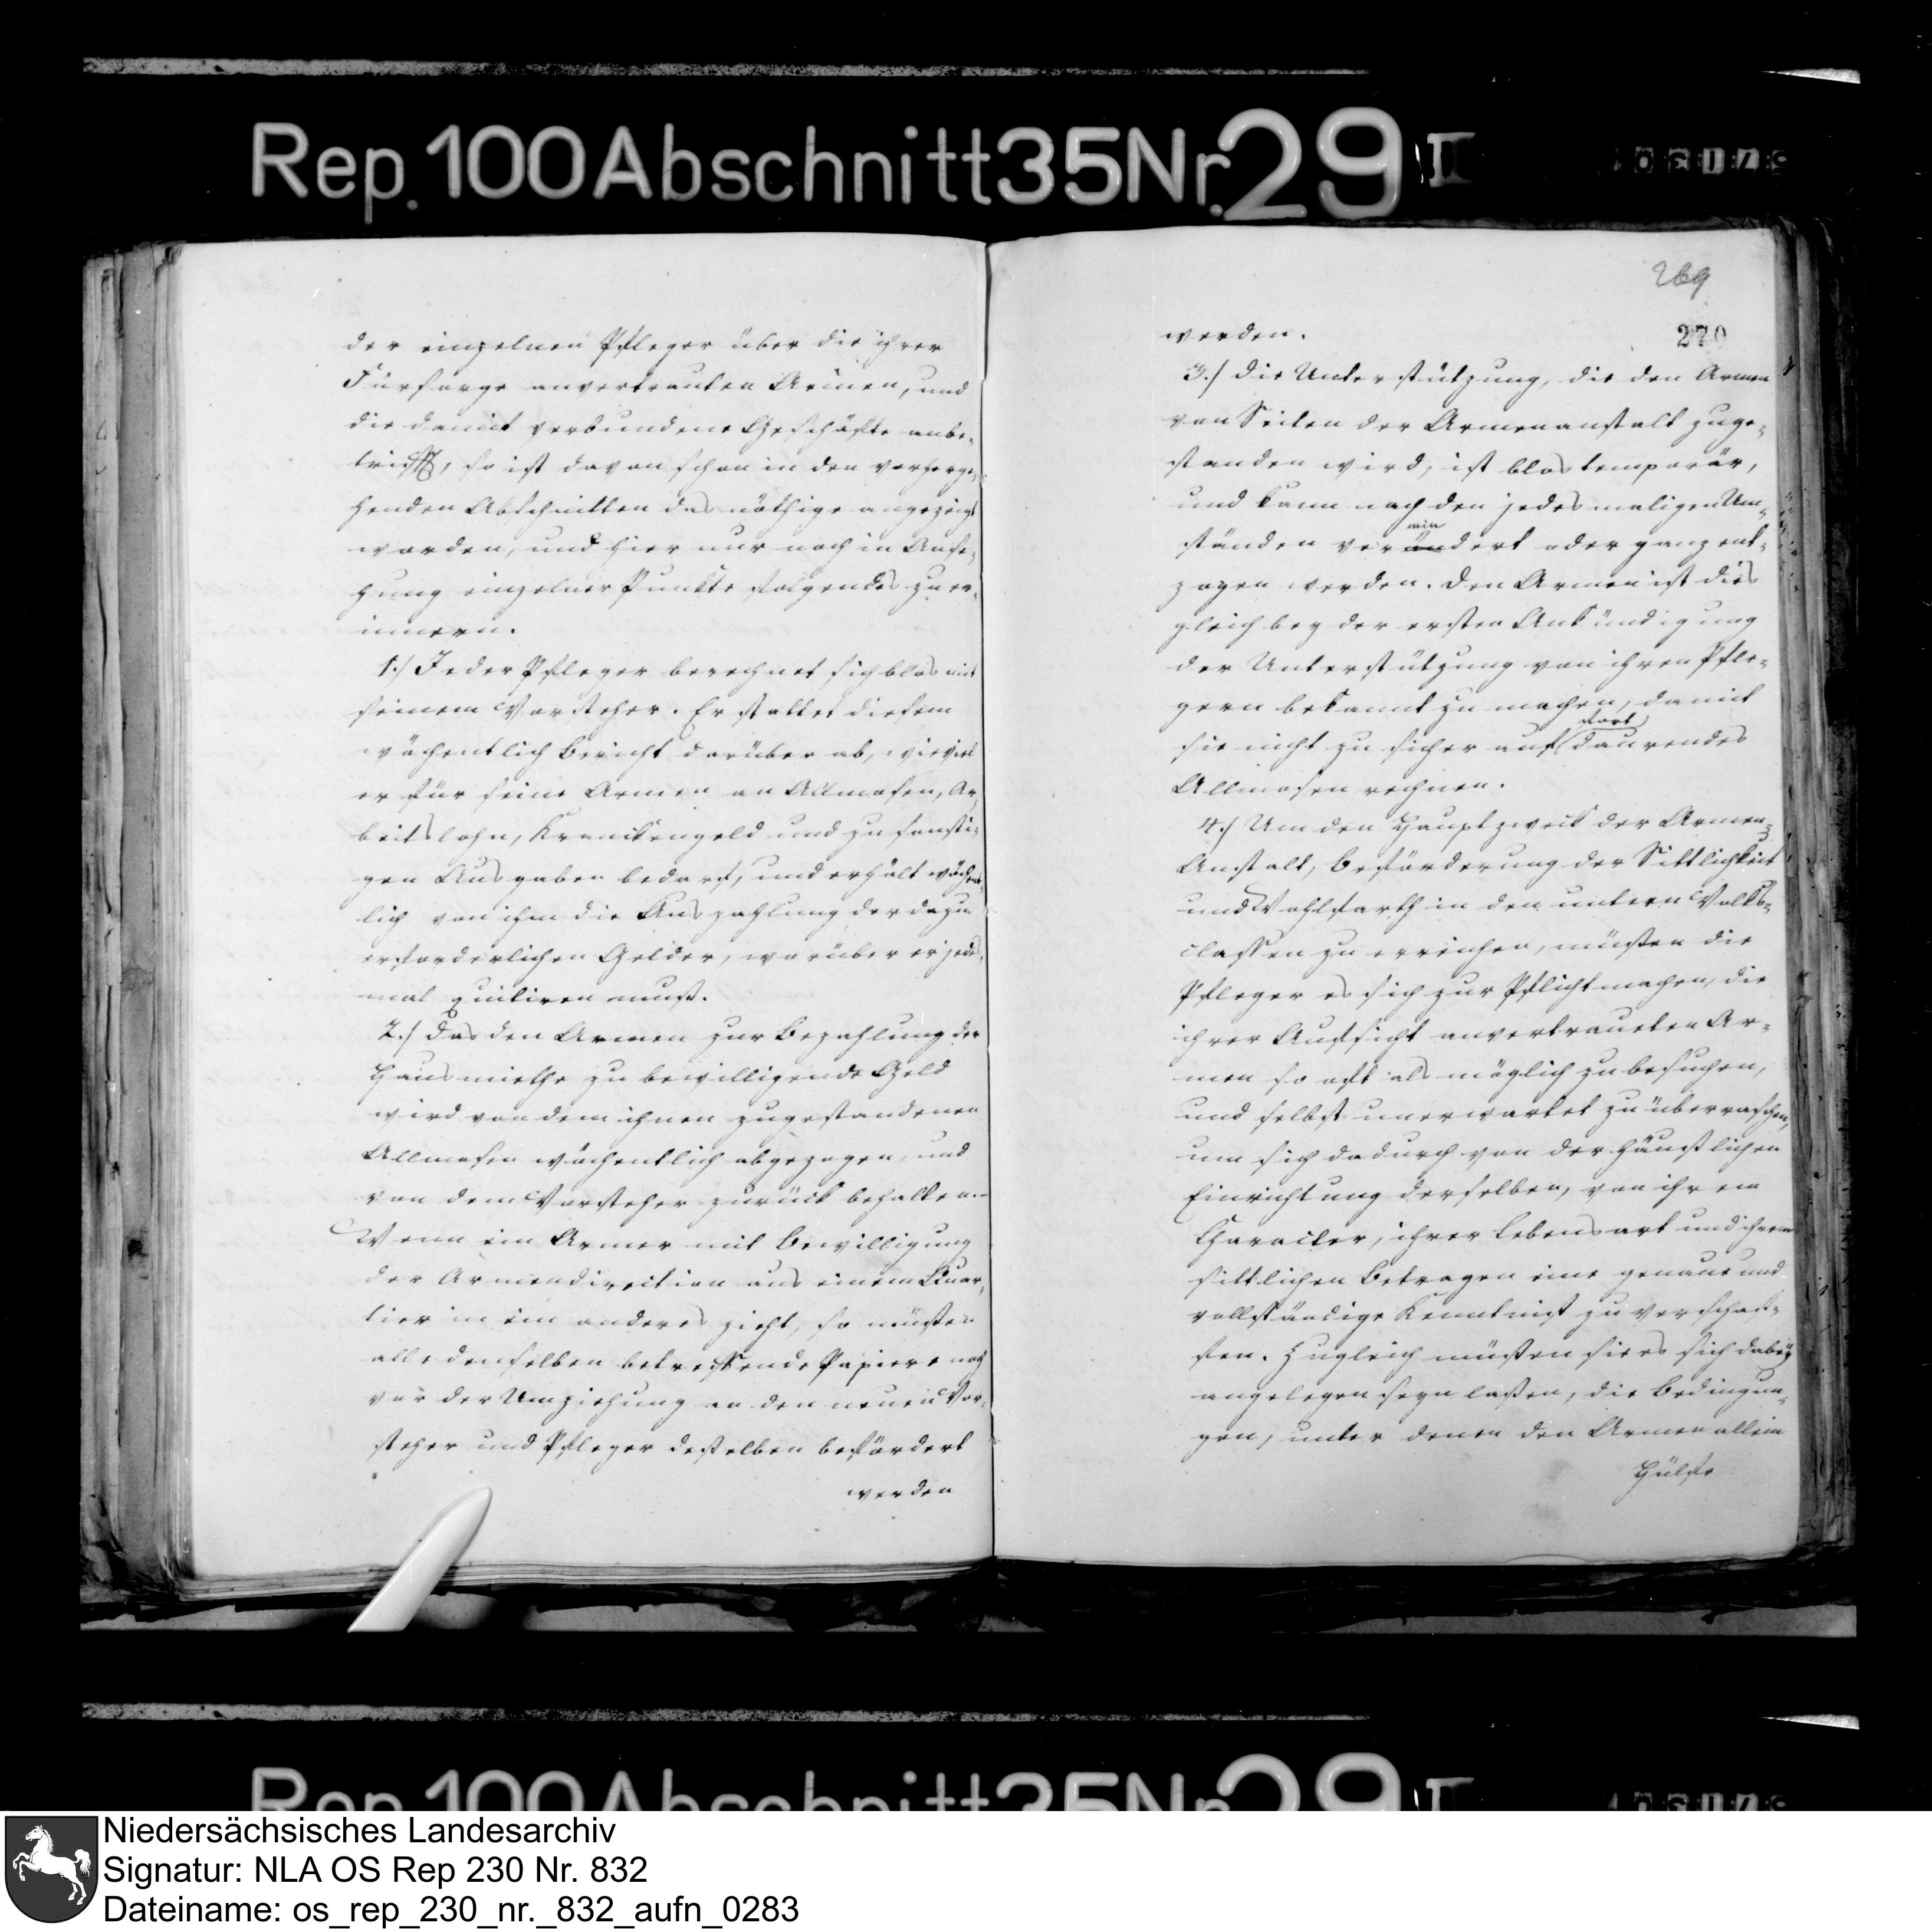 Rep. 100 Abschnitt 35 Nr. 29 I
der einzelnen Pfleger über die ihrer
Fürsorge anvertrauten Armen, und
die damit verbundene Geschäfte anbe-
trifft, so ist davon schon in den vorherge-
henden Abschnitten das nöthige angezeigt
worden, und hier nur noch in Anse-
hung einzelner Punkte folgendes zu er-
innern.
1./ Jeder Pfleger berechnet sich blos mit
seinem Vorsteher. Er stattet diesem
wöchentlich Bericht darüber ab, wieviel
er für seine Armen an Allmosen, Ar-
beitslohn, Kranckengeld und zu sonsti-
gen Ausgaben bedarf, und erhält wöchent-
lich von ihm die Auszahlung der dazu
erforderlichen Gelder, worüber er jedes-
mal quitiren muß.
2./ Das den Armen zur Bezahlung der
Hausmiethe zu bewilligende Geld
wird von dem ihnen zugestandenen
Allmosen wöchentlich abgezogen, und
von dem Vorsteher zurück behalten.-
Wenn ein Armer mit Bewilligung
der Armendirection aus einem Quar-
tier in ein anderes zieht, so müßen
alle denselben betreffende Papiere noch
vor der Umziehung an den neuen Vor-
steher und Pfleger deßelben befördert
werden
269
270
werden.
3./ Die Unterstützung, die den Armen
von Seiten der Armenanstalt zuge-
standen wird, ist blos temporär,
und kann nach den jedesmaligen Um-
min
ständen verändert oder ganz ent-
zogen werden. Den Armen ist dies
gleich bey der ersten Ankündigung
der Unterstützung von ihren Pfle-
gern bekannt zu machen, damit
fort
sie nicht zu sicher auf daurendes
Allmosen rechnen.
4./ Um den Hauptzweck der Armen-
Anstalt, Beförderung der Sittlichkeit
und Wohlfarth in den untern Volks-
classen zu erreichen, müßen die
Pfleger es sich zur Pflicht machen, die
ihrer Aufsicht anvertraueten Ar-
men so oft als möglich zu besuchen,
und selbst unerwartet zu überraschen,
um sich dadurch von der häuslichen
Einrichtung derselben, von ihrem
Character, ihrer Lebensart und ihrem
sittlichen Betragen eine genaue und
vollständige Kenntniß zu verschaf-
fen. Zugleich müßen sie es sich dabey
angelegen seyn laßen, die Bedingun-
gen, unter denen den Armen allein
Hülfe
Rep. 100 Abschnitt 35 Nr. 29 I
Niedersächsisches Landesarchiv
Signatur: NLA OS Rep 230 Nr. 832
Dateiname: os_rep_230_nr._832_aufn_0283